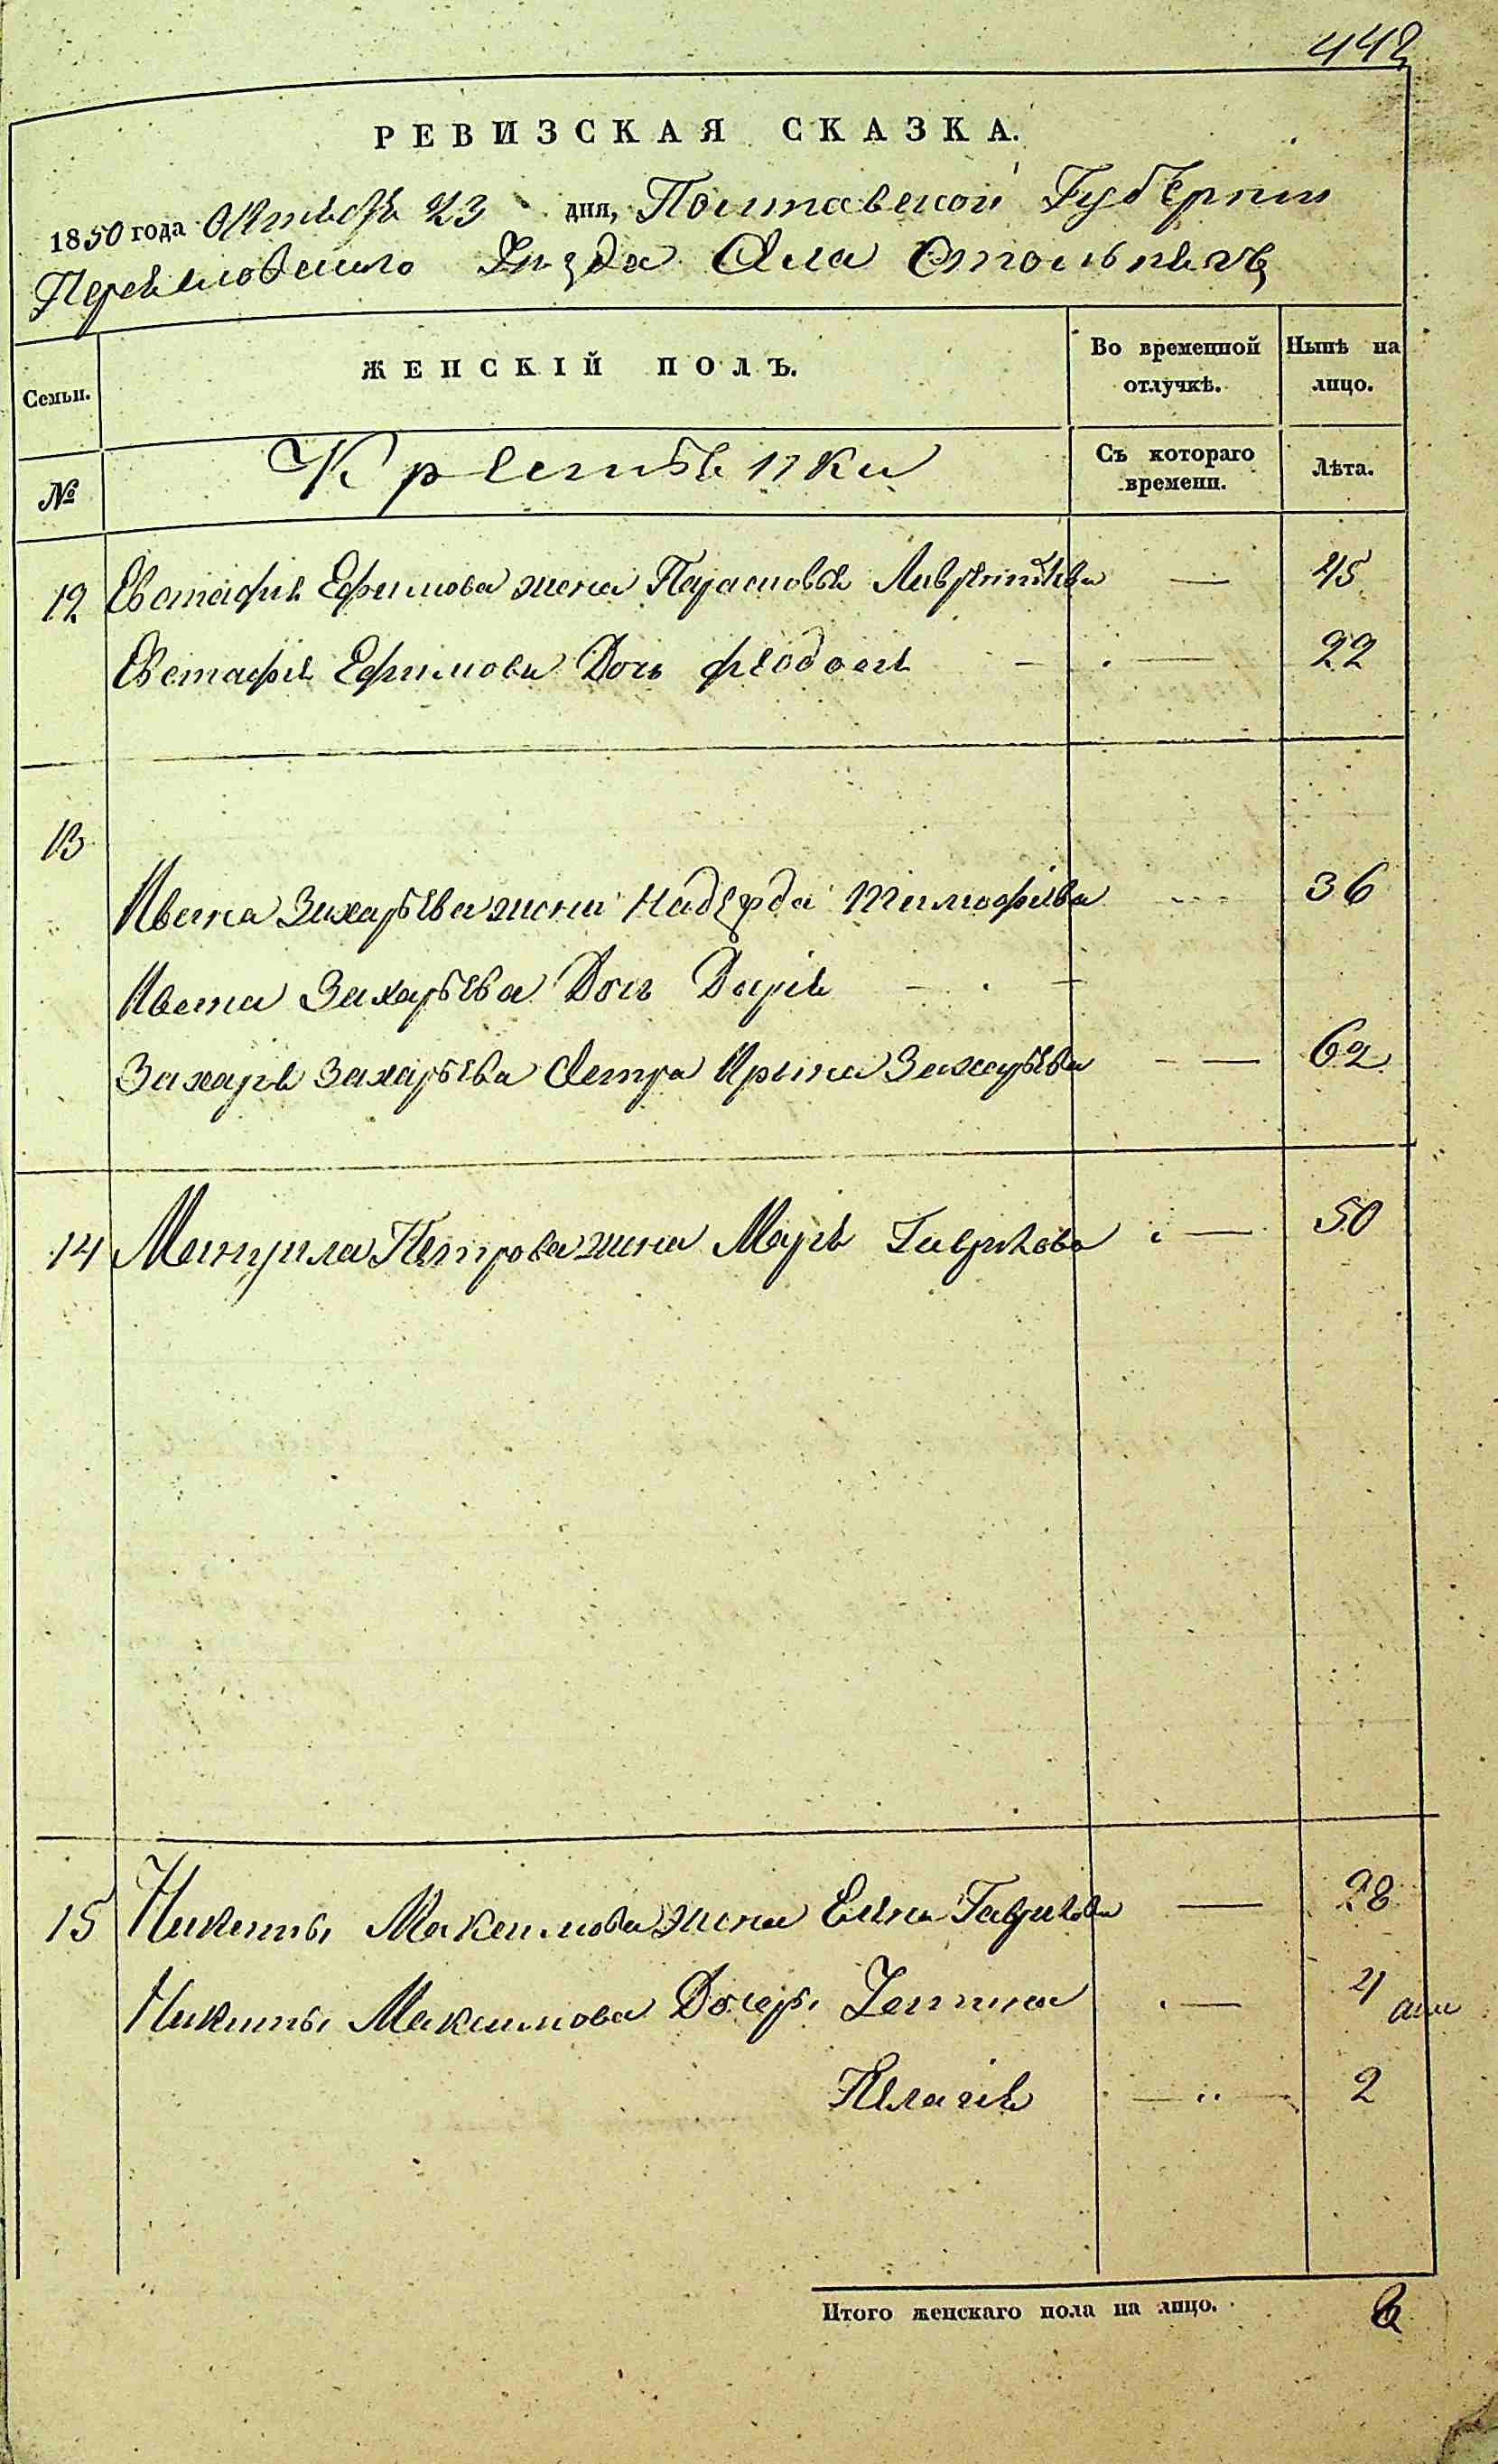 442
РЕВИЗСКАЯ СКАЗКА.
1850 года Октября 23 дня, Полтавской Губернии
Переяловского Уезда Села Стольнягъ
Семьи.
ЖЕНСКІЙ ПОЛЪ.
Во временной отлучкѣ.
Нынѣ на лицо.
№
Крестьянки
Съ котораго времени.
Лѣта.
12 Евстафия Ефимова жена Парасковья Лаврентьева — 45
Евстафия Ефимова Дочь Феодосия — 22
13
Ивана Захарьева жена Надежда Тимофеева — 36
Ивана Захарьева Дочь Дария —
Захария Захарьева Сестра Ирина Захарьева — 62
14 Мануила Петрова жена Мария Гаврилова — 50
15 Никиты Максимова жена Елена Гаврилова — 28
Никиты Максимова Дочери — 4
Пелагия — 2
Итого женскаго пола на лицо. 8